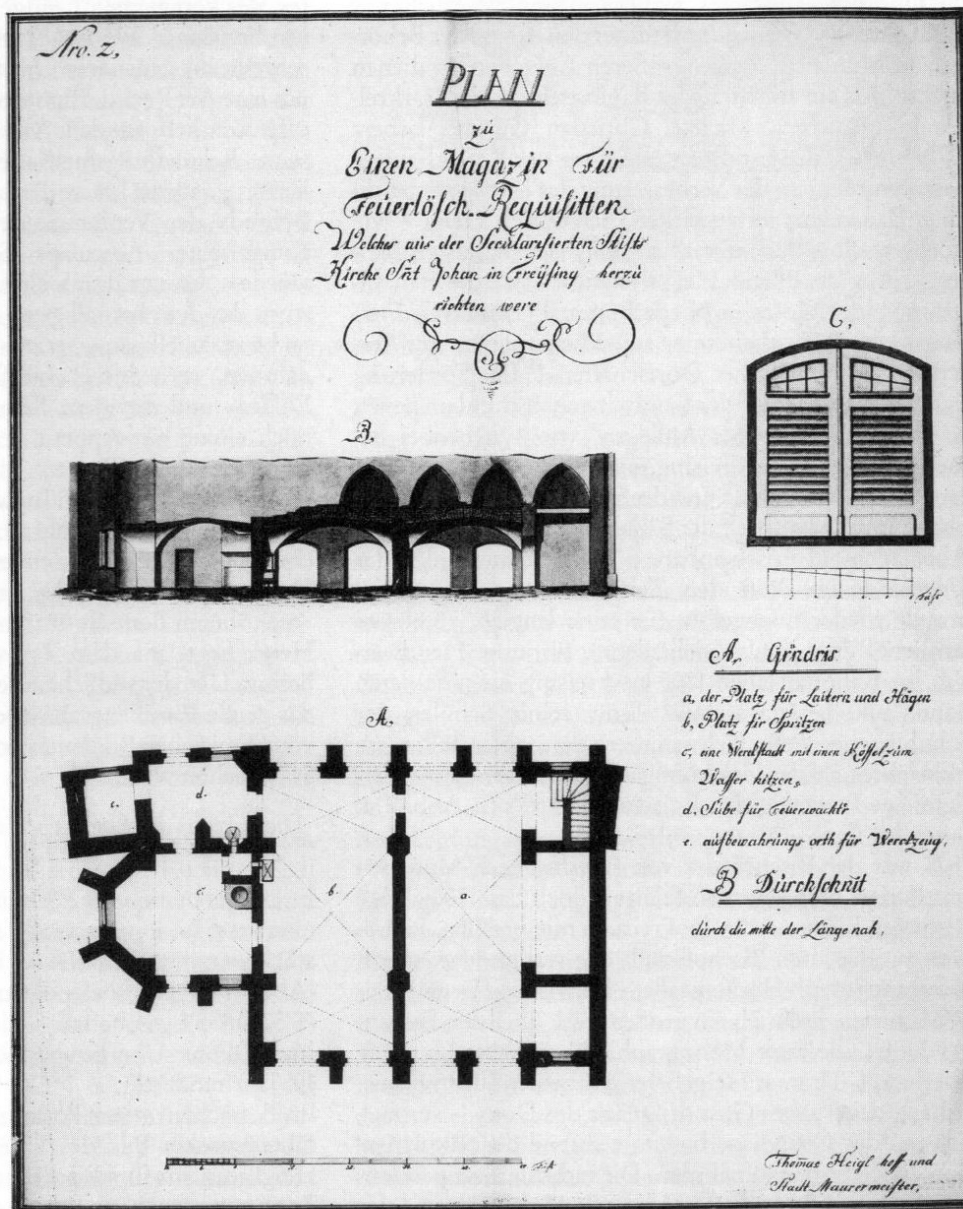 Nro. 2,
PLAN
zu
Einen Magazin Für
Feuerlösch. Requisitten
Welcher aus der Secularisierten Stifts
Kirche Snt Johan in Freysing herzu
richten were
B.
C,
A, Grundris
a, der Platz für Laitern und Hägen
b, Platz für Spritzen
c, eine Werckstadt mit einen Kössel zum
Wasser hitzen,
d. Stube für Feuerwacht
e. aufbewahrungs orth für Werckzeug.
B Durchschnit
durch die mitte der Länge nah,
A.
e.
d.
c.
b.
a.
Thomas Heigl hoff und
Stadt Maurermeister,